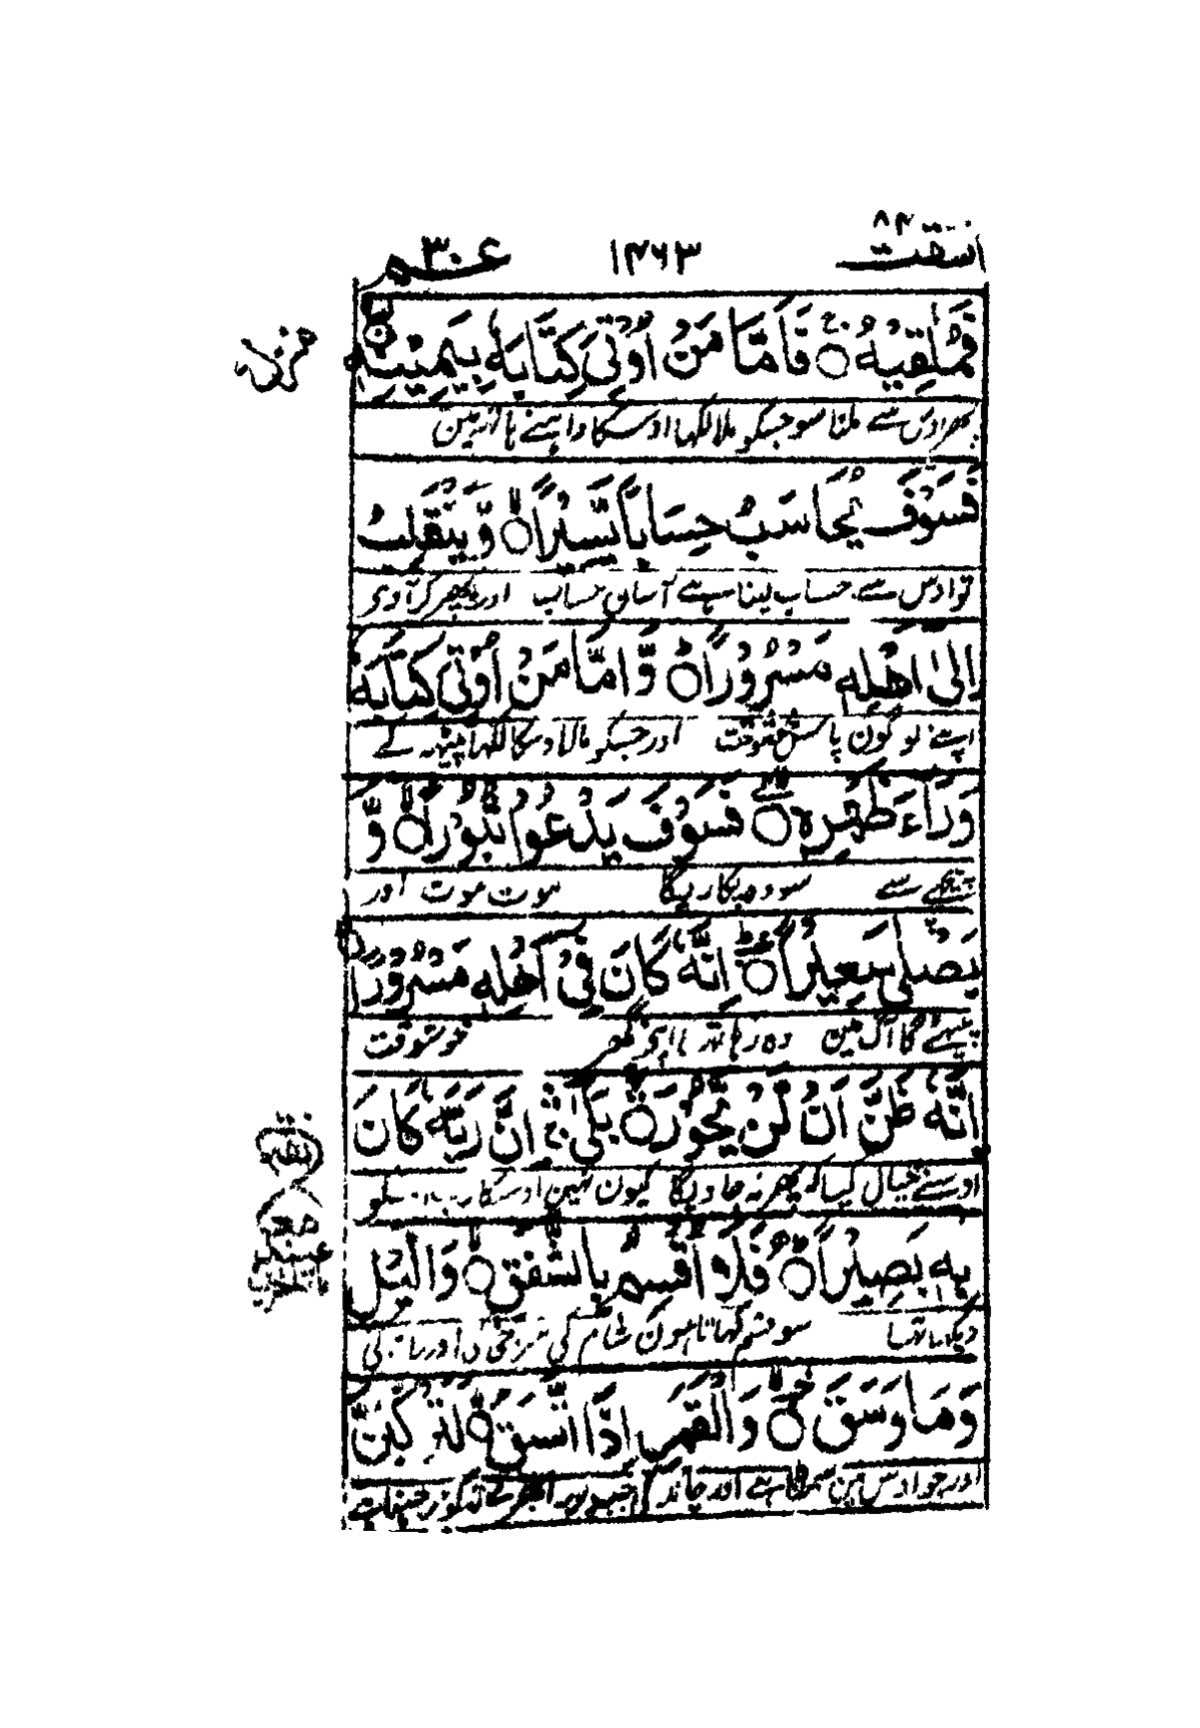 انشقت ٨٤ ١٤٦٣ عم ٣٠
فَمُلٰقِيْهِ ۚ فَاَمَّا مَنْ اُوْتِيَ كِتَابَهٗ بِيَمِيْنِهٖ
پھر اوس سے ملنا سو جسکو ملا لکھا اوسکا داہنے ہاتھ مین
فَسَوْفَ يُحَاسَبُ حِسَابًا يَّسِيْرًا ۙ وَّيَنْقَلِبُ
تو اوس سے حساب لینا ہے آسان حساب اور پھر کر آویگا
اِلٰٓى اَهْلِهٖ مَسْرُوْرًا ؕ وَّاَمَّا مَنْ اُوْتِيَ كِتَابَهٗ
اپنے لوگون پاس خوشوقت اور جسکو ملا اوسکا لکھا پیٹھ کے
وَرَآءَ ظَهْرِهٖ ۙ فَسَوْفَ يَدْعُوْا ثُبُوْرًا ۙ وَّ
پیچھے سے سو وہ پکاریگا موت موت اور
يَصْلٰى سَعِيْرًا ؕ اِنَّهٗ كَانَ فِيْٓ اَهْلِهٖ مَسْرُوْرًا
پیٹھے گا آگ مین وہ رہا تھا اپنے گھر خوشوقت
اِنَّهٗ ظَنَّ اَنْ لَّنْ يَّحُوْرَ ۚ بَلٰٓى ۚ اِنَّ رَبَّهٗ كَانَ
اوسنے خیال کیا کہ پھر نہ جاویگا کیون نہین اوسکا رب اوسکو
بِهٖ بَصِيْرًا ؕ فَلَآ اُقْسِمُ بِالشَّفَقِ ۙ وَالَّيْلِ
دیکھتا تھا سو قسم کھاتا ہون شام کی سرخی کی اور رات کی
وَمَا وَسَقَ ۙ وَالْقَمَرِ اِذَا اتَّسَقَ ۙ لَتَرْكَبُنَّ
اور جو اوس مین سمٹا ہے اور چاند کی جب پورا